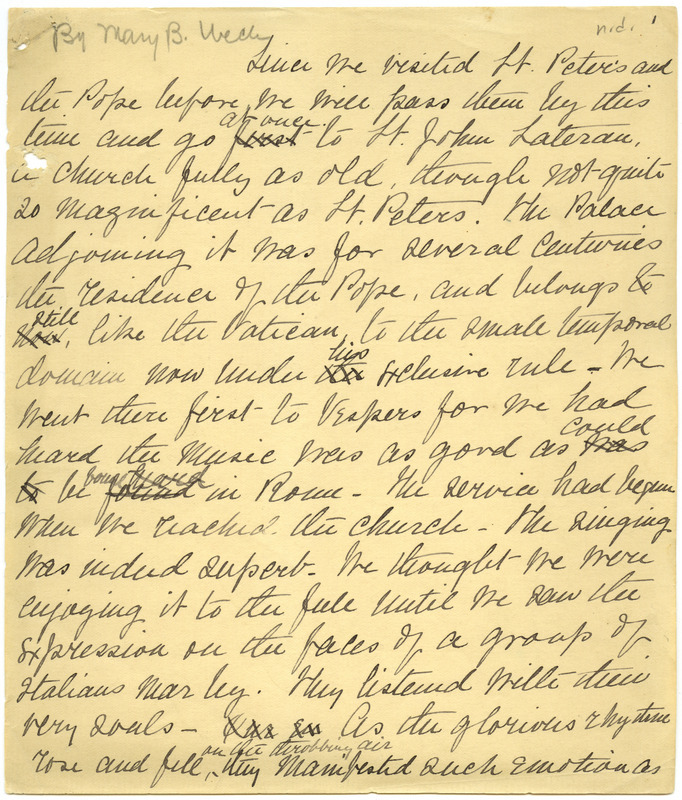 By Mary B. Welch
n.d. 1
Since we visited St. Peter's and
the Pope before, we will pass them by this
at once
time and go first to St. John Lateran,
a church fully as old, though not quite
so magnificent as St. Peters. The Palace
adjoining it was for several centuries
the residence of the Pope, and belongs to
still
now, like the Vatican, to the small temporal
his
domain now under the exclusive rule – We
went there first to Vespers for we had
could
heard the music was as good as was
heard
to be found in Rome – The service had begun
when we reached the church – The singing
was indeed superb – We thought we were
enjoying it to the full until we saw the
expression on the faces of a group of
Italians near by. They listened with their
very souls – As the glorious rhythm
on the throbbing air
rose and fell, they manifested such emotion as